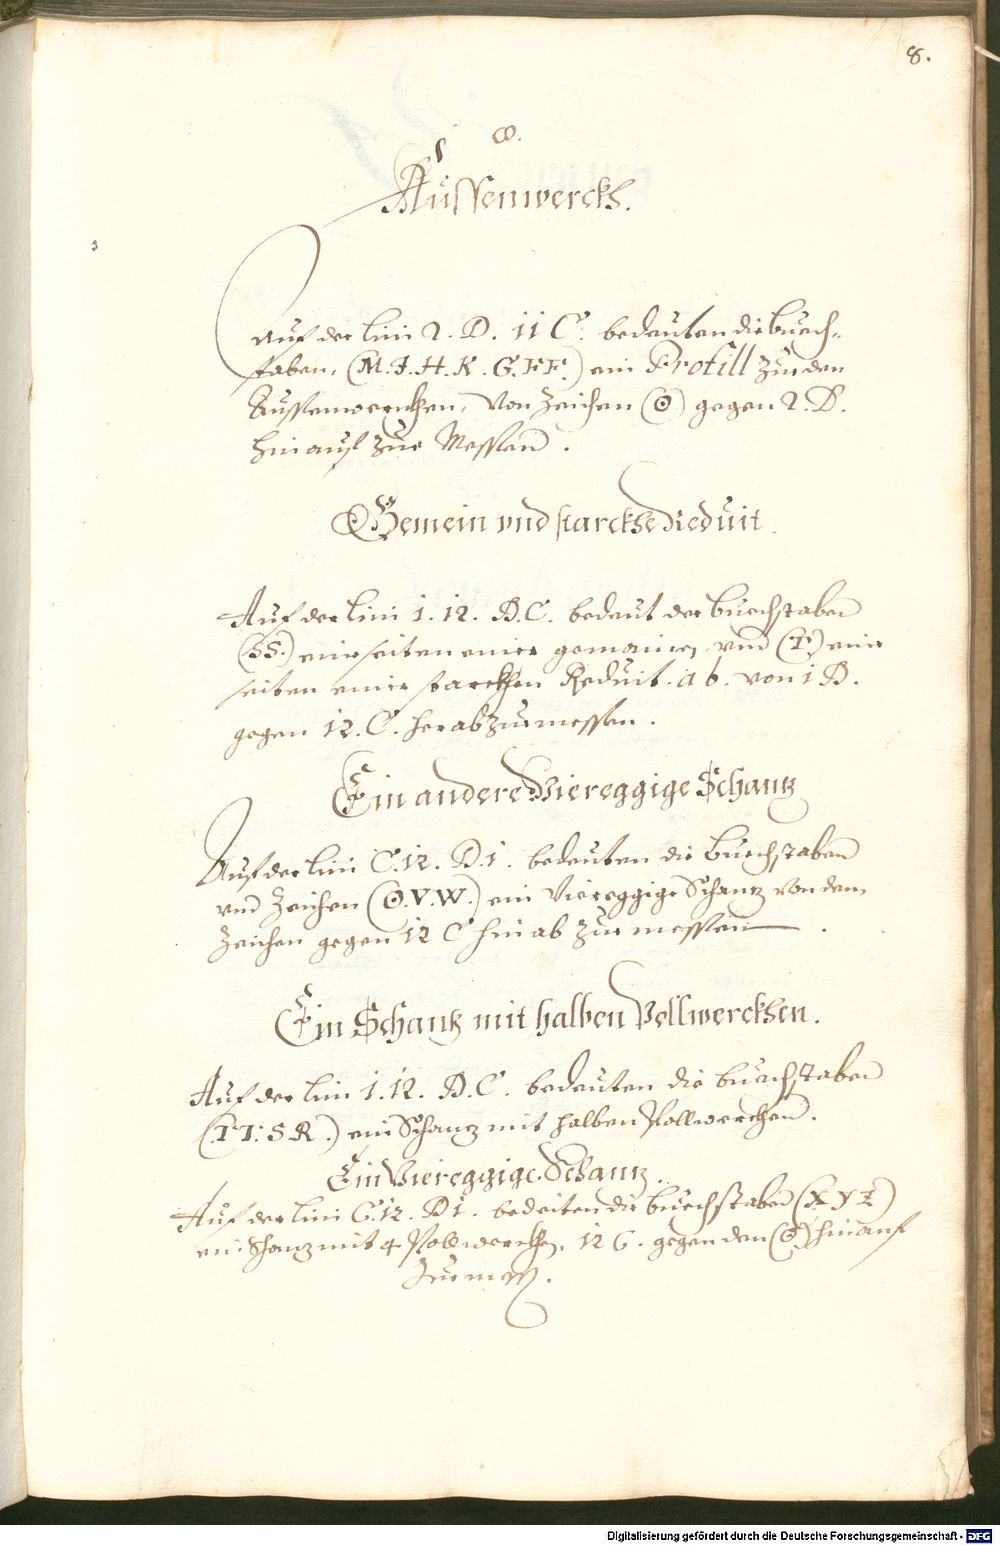 8.
8.
Aussenwerckh.
Auf der lini 2. D. 11 C. bedeuten die buech-
staben, (M. I. H. K. G. F F.) ein Profill zur den
Aussenwerckhen, von Zeichen (☉) gegen 2. D.
hinauf zue Messen.
Gemein vnd starckhe Rieduit.
Auf der lini 1. 12. D. C. bedeut der buechstaben
(SS.) eine seiten einer gemainen vnd (T.) eine
seiten einer starckhen Reduit. ab. von 1 D.
gegen 12. C. herab zur messen.
Ein andere Viereggige Schantz
Auf der lini C. 12. D. 1. bedeuten die buechstaben
vnd Zeichen (☉. V. W.) ein Viereggige Schantz von dem
Zeichen gegen 12 C hinab zur messen.
Ein Schantz mit halben Pollwerckhen.
Auf der lini 1. 12. D. C. bedeuten die buechstaben
(T T. S R.) ein Schantz mit halben Pollwerckhen.
Ein Viereggige Schantz.
Auf der lini C. 12. D 1. bedeiten die buechstaben (X y Z)
ein Schantz mit 4 Pollwerckhen, 12 C. gegen den (☉) hinauf
zur mess.
Digitalisierung gefördert durch die Deutsche Forschungsgemeinschaft - DFG